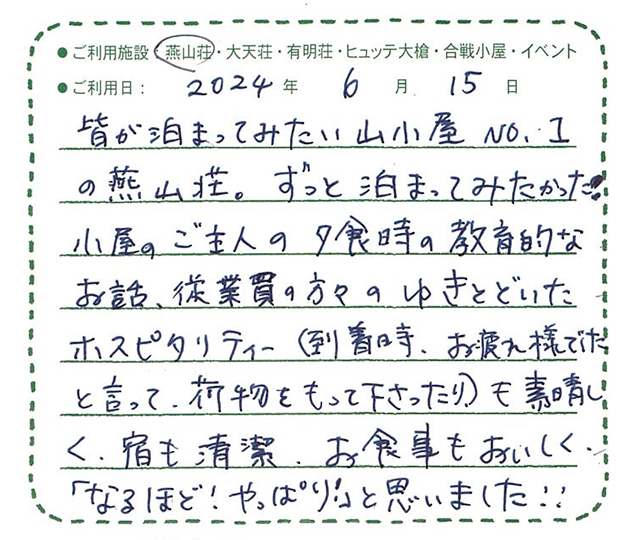 ●ご利用施設：燕山荘・大天荘・有明荘・ヒュッテ大槍・合戦小屋・イベント
●ご利用日： 2024 年 6 月 15 日
皆が泊まってみたい山小屋 NO.1
の燕山荘。ずっと泊まってみたかった!!
小屋のご主人の夕食時の教育的な
お話、従業買の方々のゆきとどいた
ホスピタリティー(到着時、お疲れ様でした
と言って、荷物をもって下さったり)も素晴し
く、宿も清潔、お食事もおいしく、
「なるほど!やっぱり!」と思いました!!